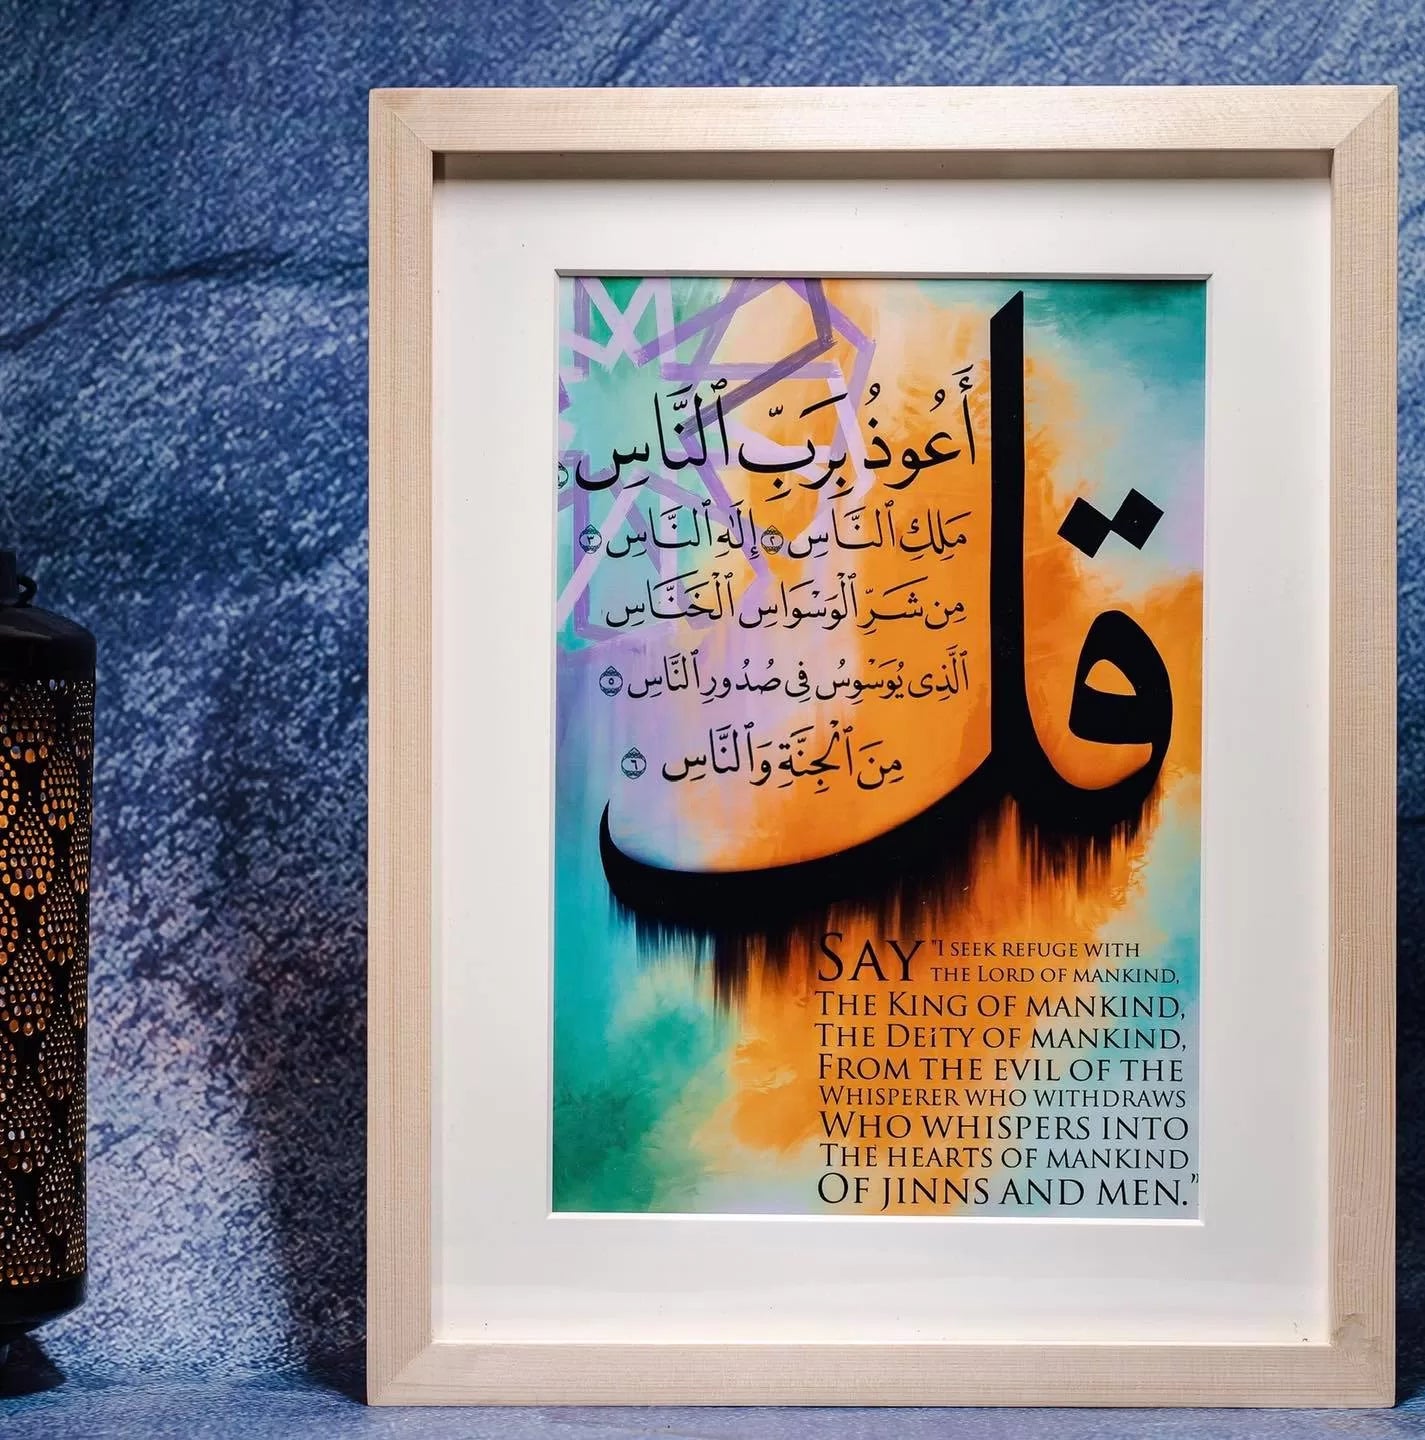 قل
أَعُوذُ بِرَبِّ ٱلنَّاسِ
مَلِكِ ٱلنَّاسِ ٢ إِلَٰهِ ٱلنَّاسِ ٣
مِن شَرِّ ٱلْوَسْوَاسِ ٱلْخَنَّاسِ
ٱلَّذِى يُوَسْوِسُ فِى صُدُورِ ٱلنَّاسِ ٥
مِنَ ٱلْجِنَّةِ وَٱلنَّاسِ ٦
SAY "I SEEK REFUGE WITH
THE LORD OF MANKIND,
THE KING OF MANKIND,
THE DEiTY OF MANKIND,
FROM THE EVIL OF THE
WHISPERER WHO WITHDRAWS
WHO WHISPERS INTO
THE HEARTS OF MANKIND
OF JINNS AND MEN."